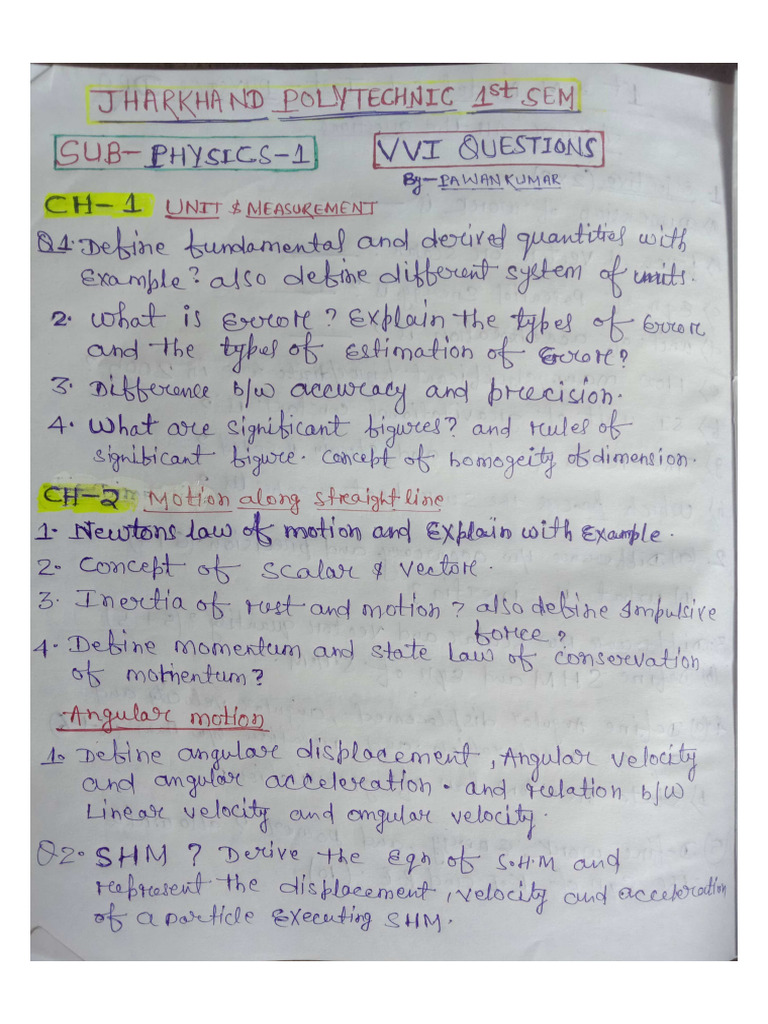 JHARKHAND POLYTECHNIC 1st SEM
SUB- PHYSICS-1 VVI QUESTIONS
By- PAWAN KUMAR
CH-1 UNIT & MEASUREMENT
Q1. Define fundamental and derived quantities with
Example? also define different system of units.
2. What is Error? Explain the types of Error
and the types of Estimation of Error?
3. Difference b/w accuracy and precision.
4. What are significant figures? and rules of
significant figure. concept of homogeity of dimension.
CH-2 Motion along straight line
1. Newtons law of motion and Explain with Example.
2. Concept of scalar & vector.
3. Inertia of rest and motion? also define Impulsive
force?
4. Define momentum and state law of conservation
of momentum?
Angular motion
1. Define angular displacement, Angular velocity
and angular acceleration. and relation b/w
Linear velocity and angular velocity.
Q2. SHM? Derive the Eqn of S.H.M and
represent the displacement, velocity and acceleration
of a particle Executing SHM.